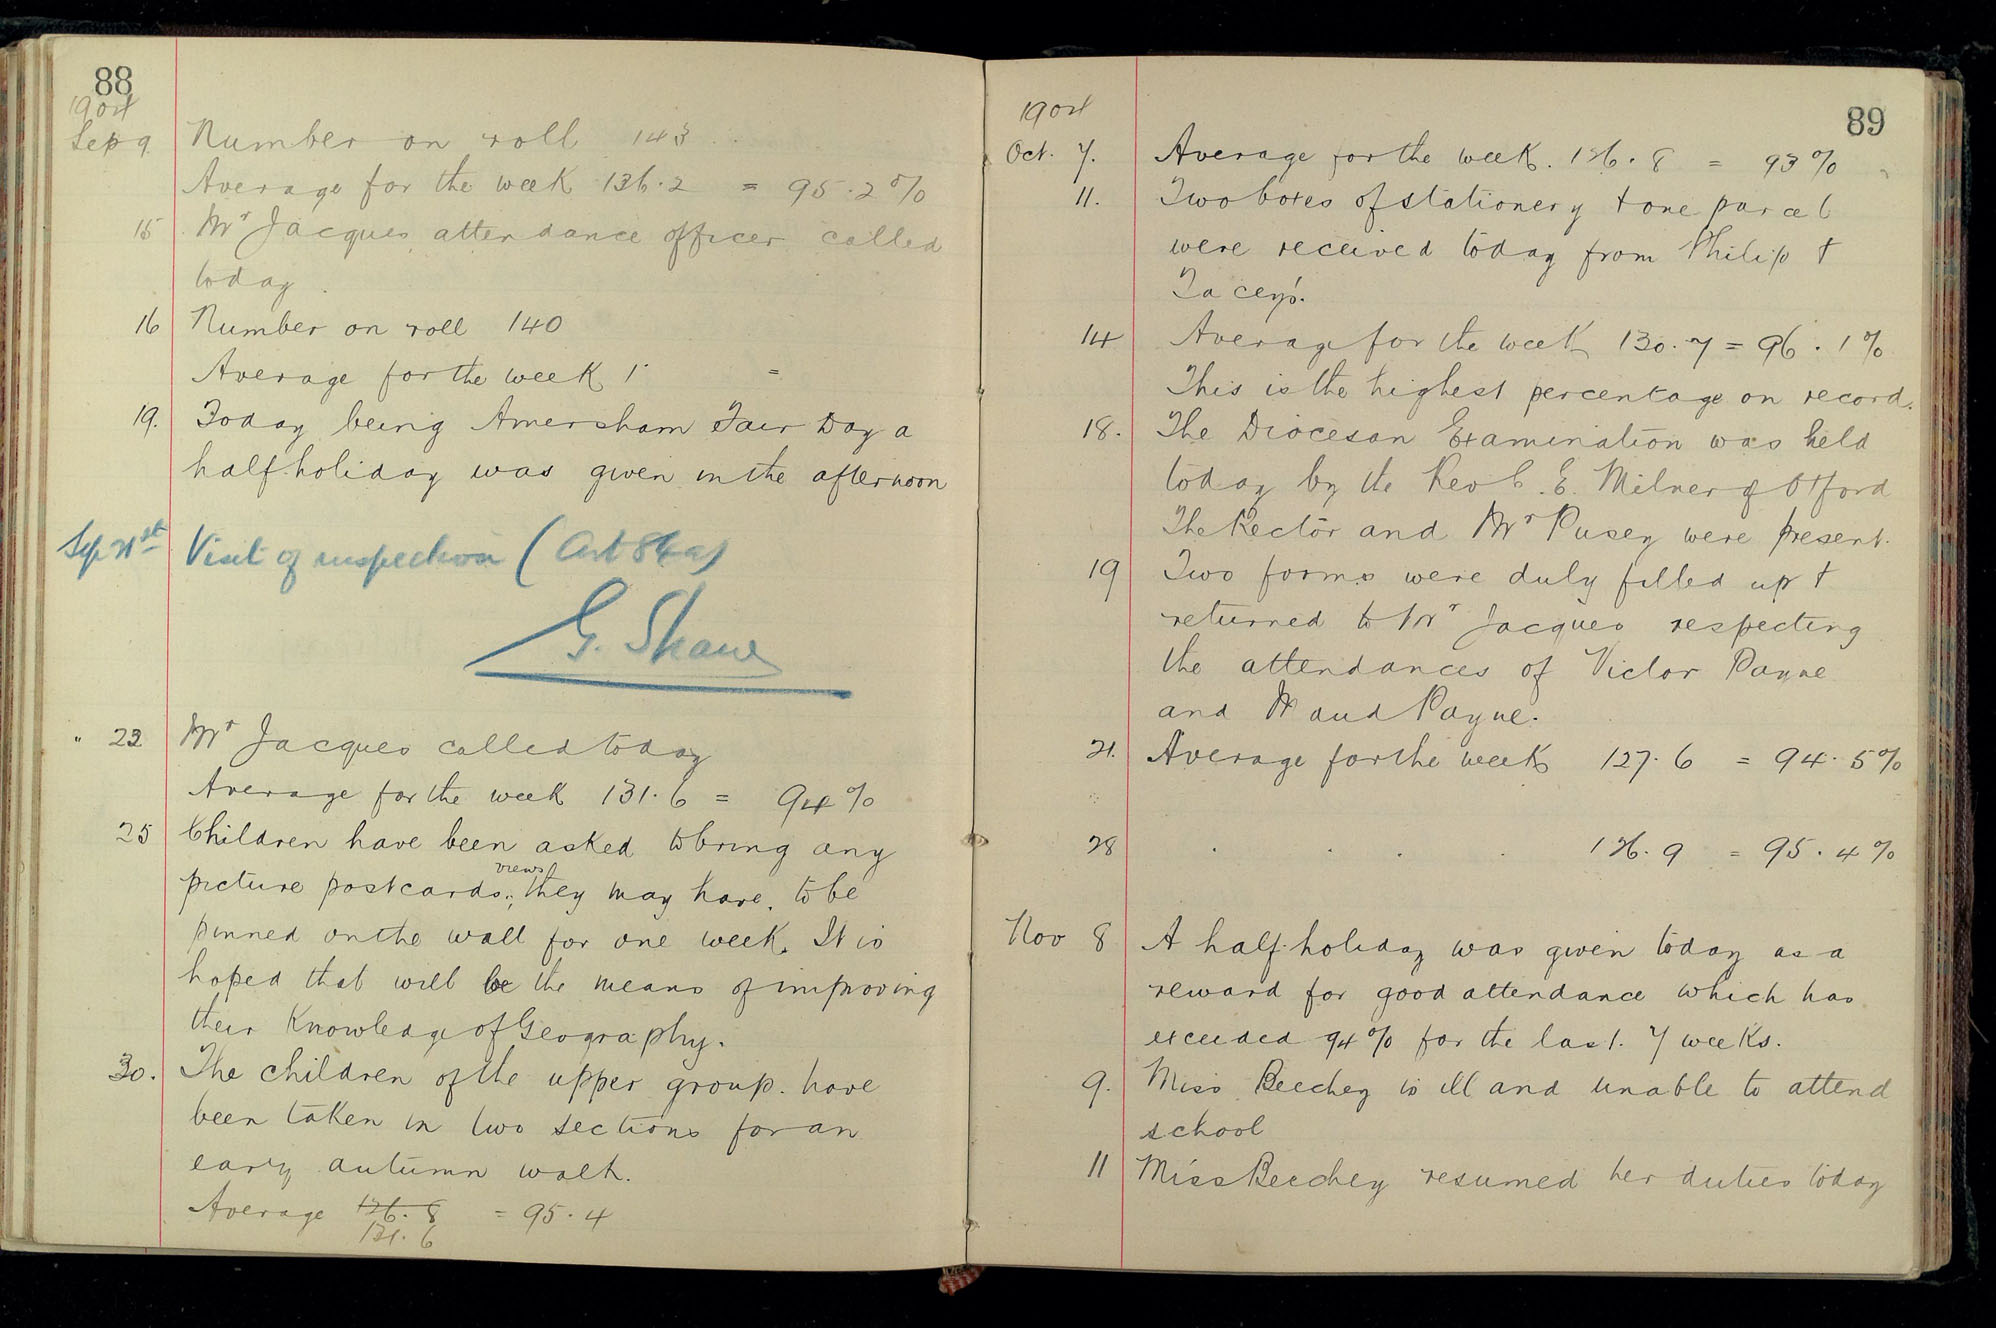 88
1904
Sep 9 Number on roll 143
Average for the week 136.2 = 95.2%
15 Mr Jacques attendance officer called
today.
16 Number on roll 140
Average for the week 1 =
19. Today being Amersham Fair Day a
half-holiday was given in the afternoon
Sep 21st Visit of inspection (Art 84a)
G. Shaw
" 23 Mr Jacques called today
Average for the week 131.6 = 94%
25 Children have been asked to bring any
views
picture postcards; they may have, to be
pinned on the wall for one week. It is
hoped that will be the means of improving
their knowledge of Geography.
30. The children of the upper group have
been taken in two sections for an
early autumn walk.
Average 126.8 = 95.4
131.6
89
1904
Oct. 7. Average for the week. 126.8 = 93%
11. Two boxes of stationery + one parcel
were received today from Philip +
Tacey's.
14 Average for the week 130.7 = 96.1%
This is the highest percentage on record.
18. The Diocesan Examination was held
today by the Rev C. E. Milner of Oxford
The Rector and Mr Pusey were present.
19 Two forms were duly filled up +
returned to Mr Jacques respecting
the attendances of Victor Payne
and Maud Payne.
21. Average for the week 127.6 = 94.5%
28 . . . . 126.9 = 95.4%
Nov 8 A half-holiday was given today as a
reward for good attendance which has
exceeded 94% for the last 7 weeks.
9. Miss Beechey is ill and unable to attend
school
11 Miss Beechey resumed her duties today